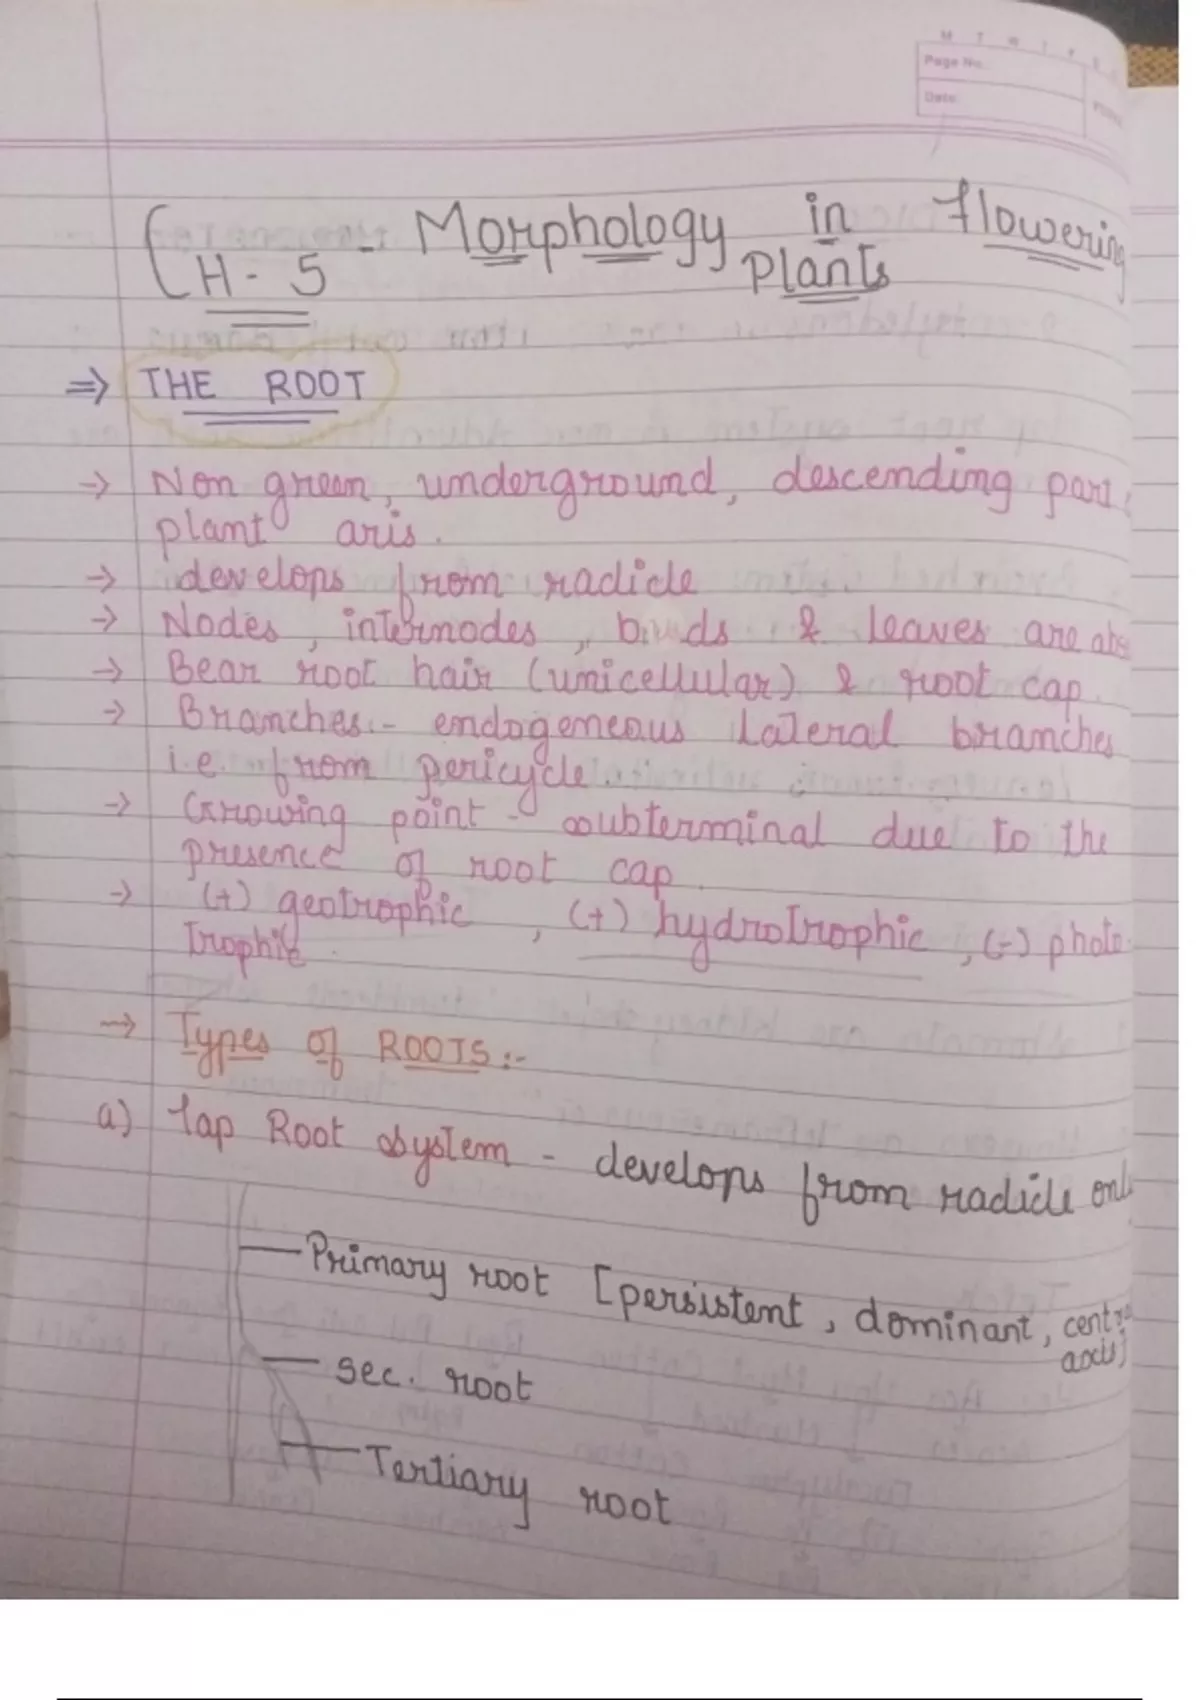 M T W T F S
Page No.
Date:
CH-5 - Morphology in flowering
Plants
=> THE ROOT
-> Non green, underground, descending part
plant axis.
-> develops from radicle
-> Nodes, internodes, buds & leaves are abs
-> Bear root hair (unicellular) & root cap.
-> Branches:- endogeneous lateral branches
i.e. from pericycle.
-> Growing point - subterminal due to the
presence of root cap.
-> (+) geotrophic, (+) hydrotrophic, (-) photo
trophic.
-> Types of ROOTS:-
a) Tap Root system - develops from radicle onl
Primary root [persistent, dominant, centra
axis]
sec. root
Tertiary root